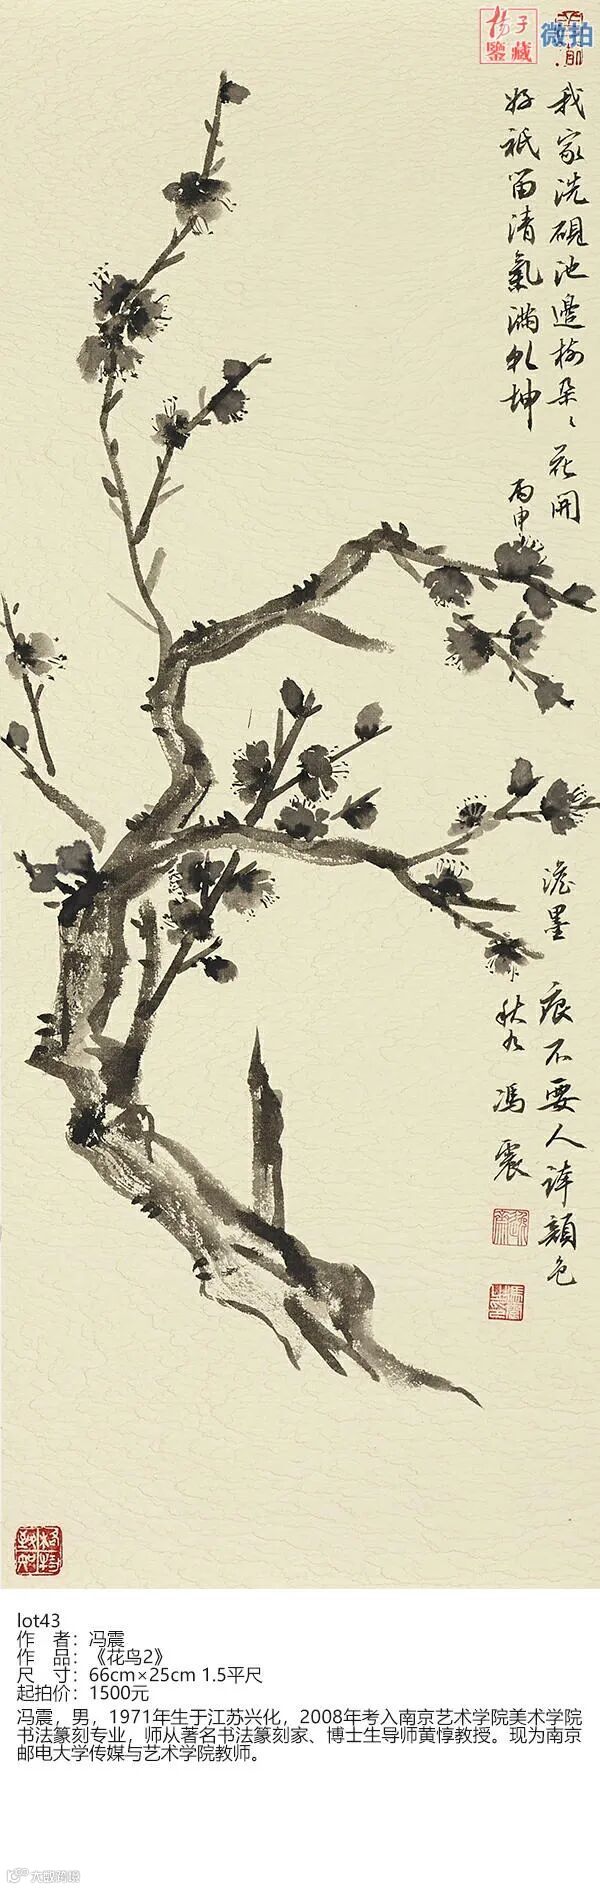 杨子
鉴藏
微拍
我家洗砚池邊樹朶〻花開
澹墨
痕不要人誇顔色
好祇留清氣滿乾坤
丙申
秋九
馮震
lot43
作 者：冯震
作 品：《花鸟2》
尺 寸：66cm×25cm 1.5平尺
起拍价：1500元
冯震，男，1971年生于江苏兴化，2008年考入南京艺术学院美术学院
书法篆刻专业，师从著名书法篆刻家、博士生导师黄惇教授。现为南京
邮电大学传媒与艺术学院教师。
大数跨境